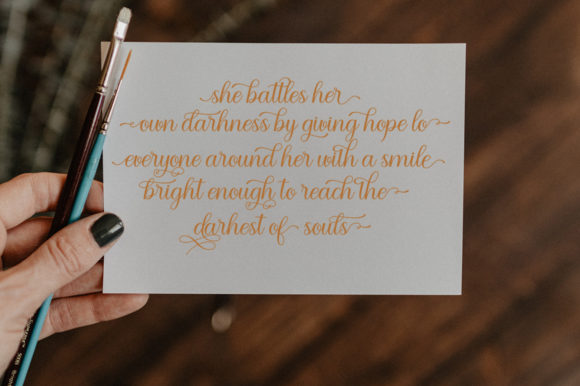 she battles her
own darkness by giving hope to
everyone around her with a smile
bright enough to reach the
darkest of souls